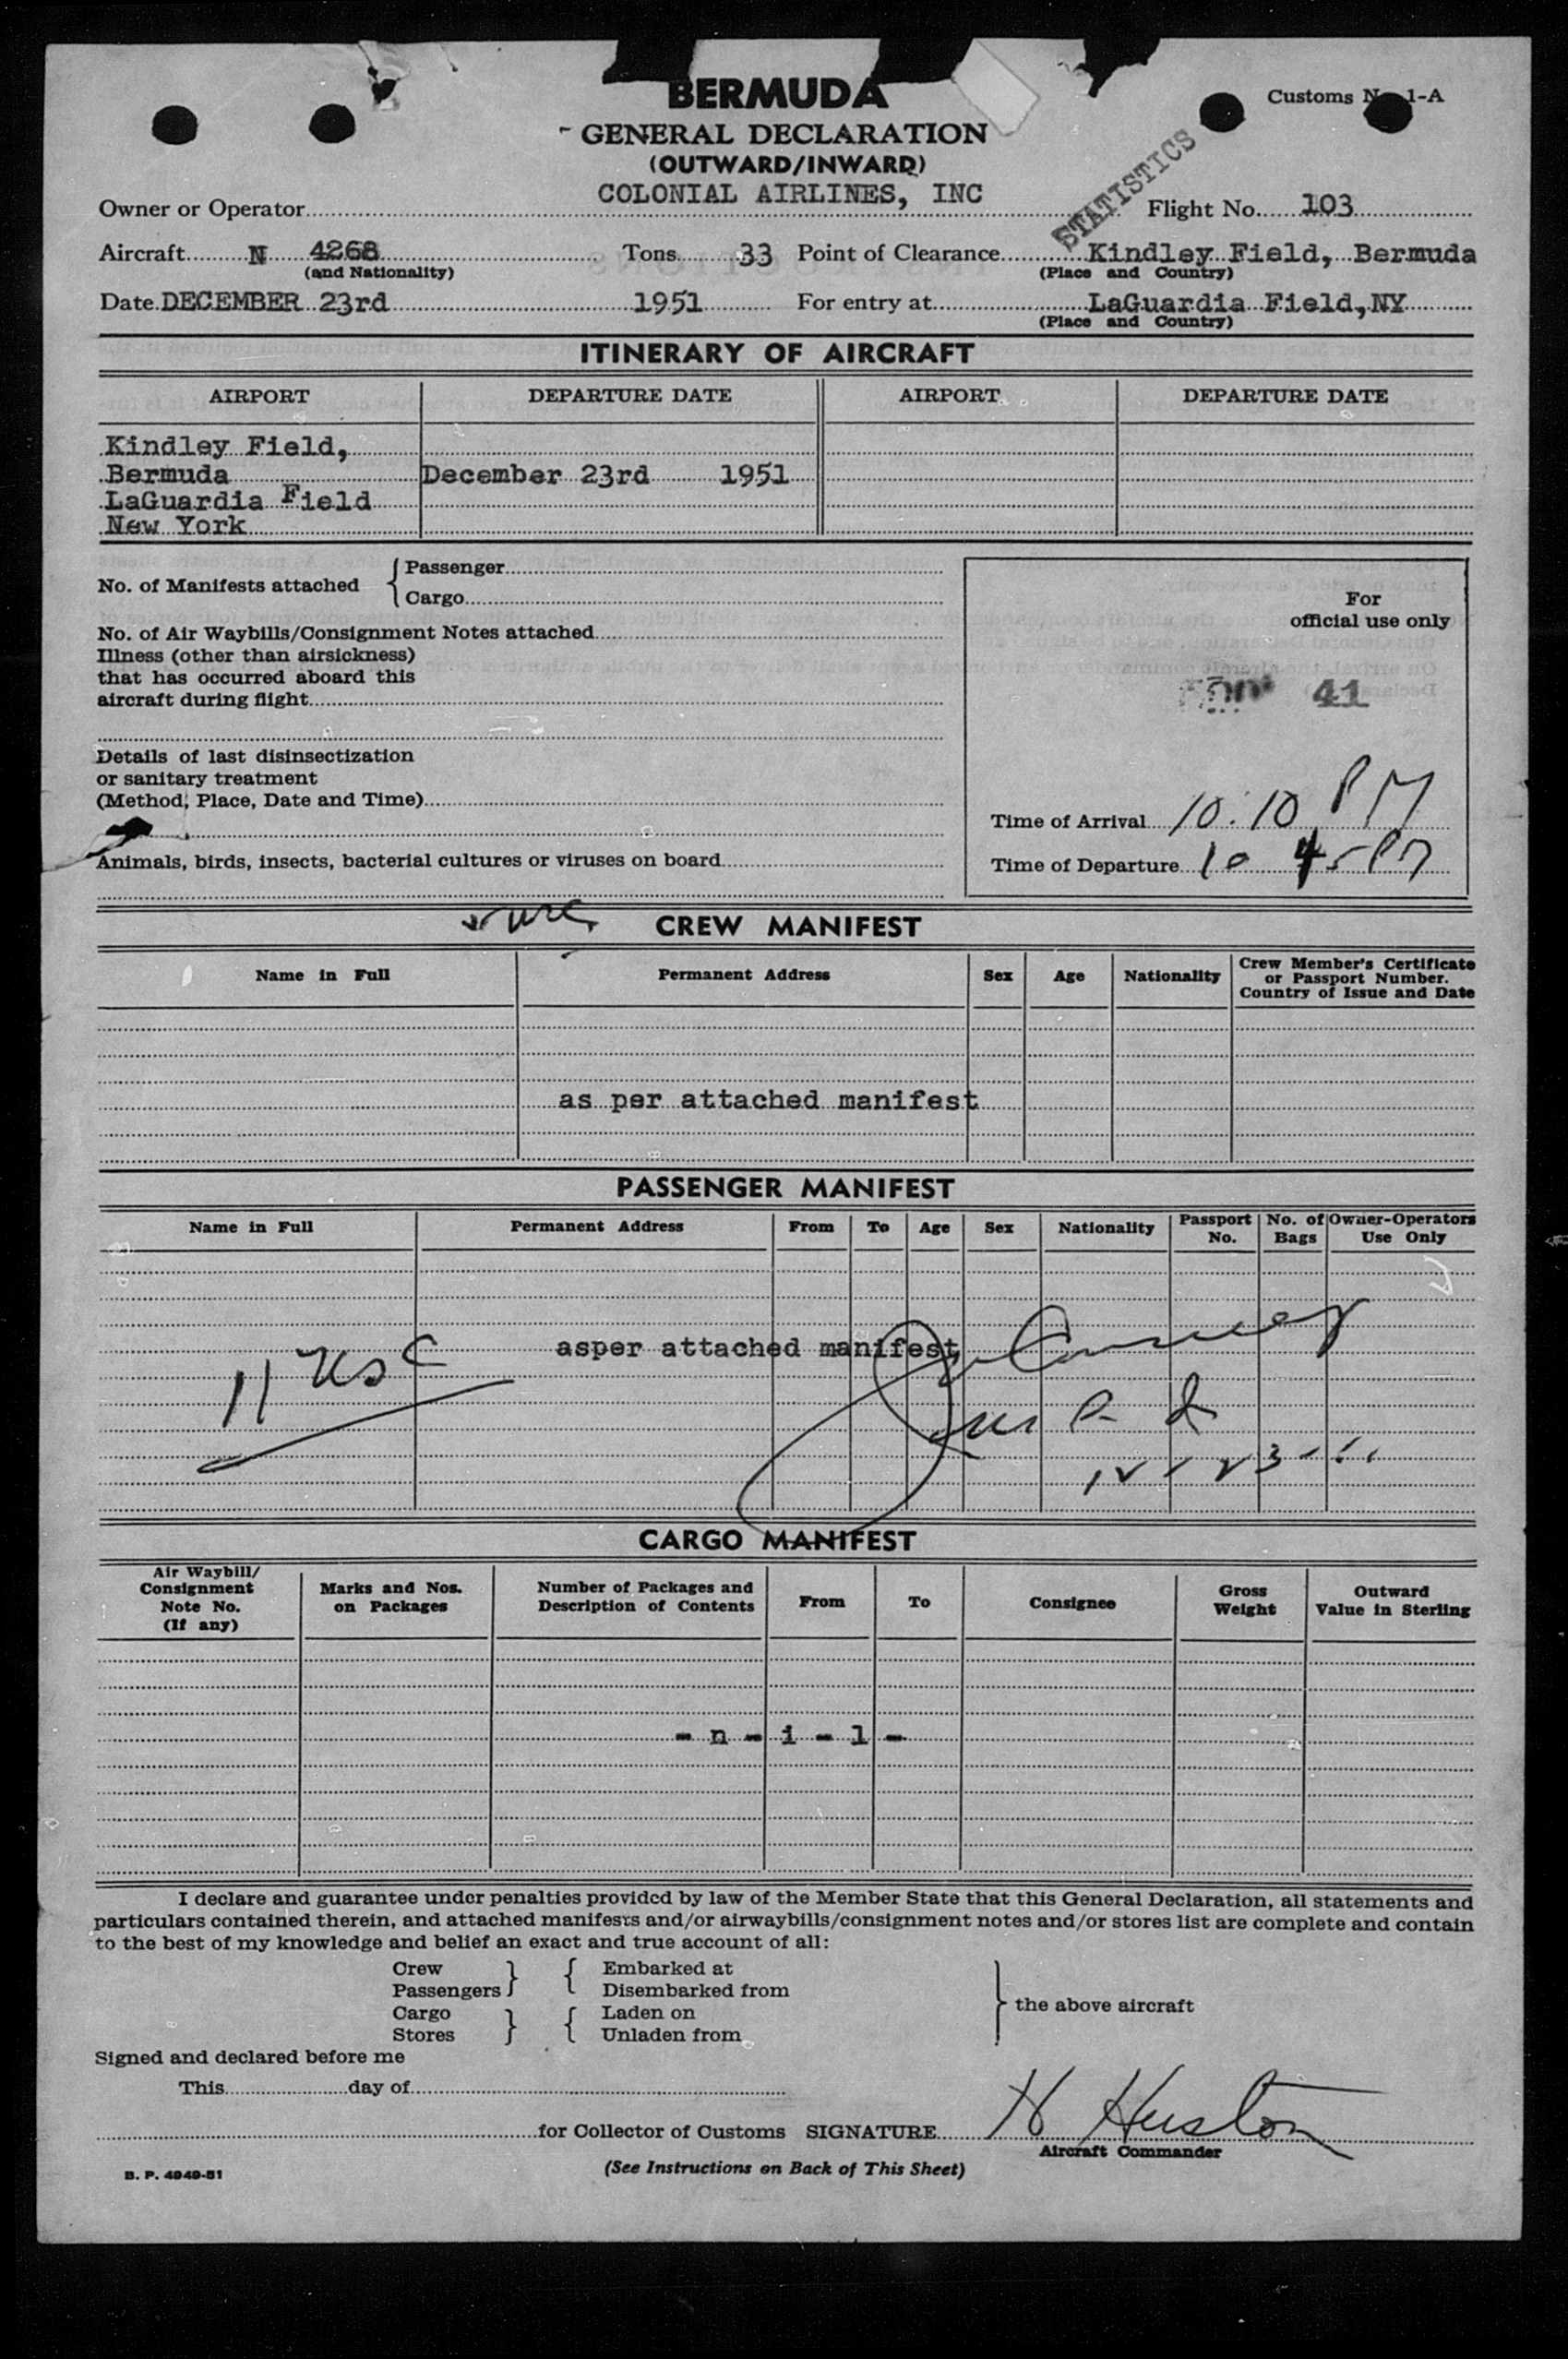 BERMUDA
Customs No. 1-A
GENERAL DECLARATION
(OUTWARD/INWARD)
STATISTICS
Owner or Operator COLONIAL AIRLINES, INC Flight No. 103
Aircraft N 4268 Tons 33 Point of Clearance Kindley Field, Bermuda
(and Nationality) (Place and Country)
Date DECEMBER 23rd 1951 For entry at LaGuardia Field,NY
(Place and Country)
ITINERARY OF AIRCRAFT
AIRPORT DEPARTURE DATE AIRPORT DEPARTURE DATE
Kindley Field,
Bermuda December 23rd 1951
LaGuardia Field
New York
No. of Manifests attached { Passenger
Cargo
No. of Air Waybills/Consignment Notes attached
Illness (other than airsickness)
that has occurred aboard this
aircraft during flight
Details of last disinsectization
or sanitary treatment
(Method, Place, Date and Time)
Animals, birds, insects, bacterial cultures or viruses on board
For
official use only
41
Time of Arrival 10:10 PM
Time of Departure 10 45 PM
CREW MANIFEST
Name in Full Permanent Address Sex Age Nationality Crew Member's Certificate
or Passport Number.
Country of Issue and Date
as per attached manifest
PASSENGER MANIFEST
Name in Full Permanent Address From To Age Sex Nationality Passport No. No. of Bags Owner-Operators Use Only
asper attached manifest
11 usc
CARGO MANIFEST
Air Waybill/
Consignment
Note No.
(If any)
Marks and Nos.
on Packages
Number of Packages and
Description of Contents
From To Consignee
Gross
Weight
Outward
Value in Sterling
- n - i - l -
I declare and guarantee under penalties provided by law of the Member State that this General Declaration, all statements and
particulars contained therein, and attached manifests and/or airwaybills/consignment notes and/or stores list are complete and contain
to the best of my knowledge and belief an exact and true account of all:
Crew } { Embarked at
Passengers Disembarked from
Cargo } { Laden on
Stores Unladen from
} the above aircraft
Signed and declared before me
This day of
for Collector of Customs SIGNATURE H Huston
Aircraft Commander
B. P. 4949-51
(See Instructions on Back of This Sheet)